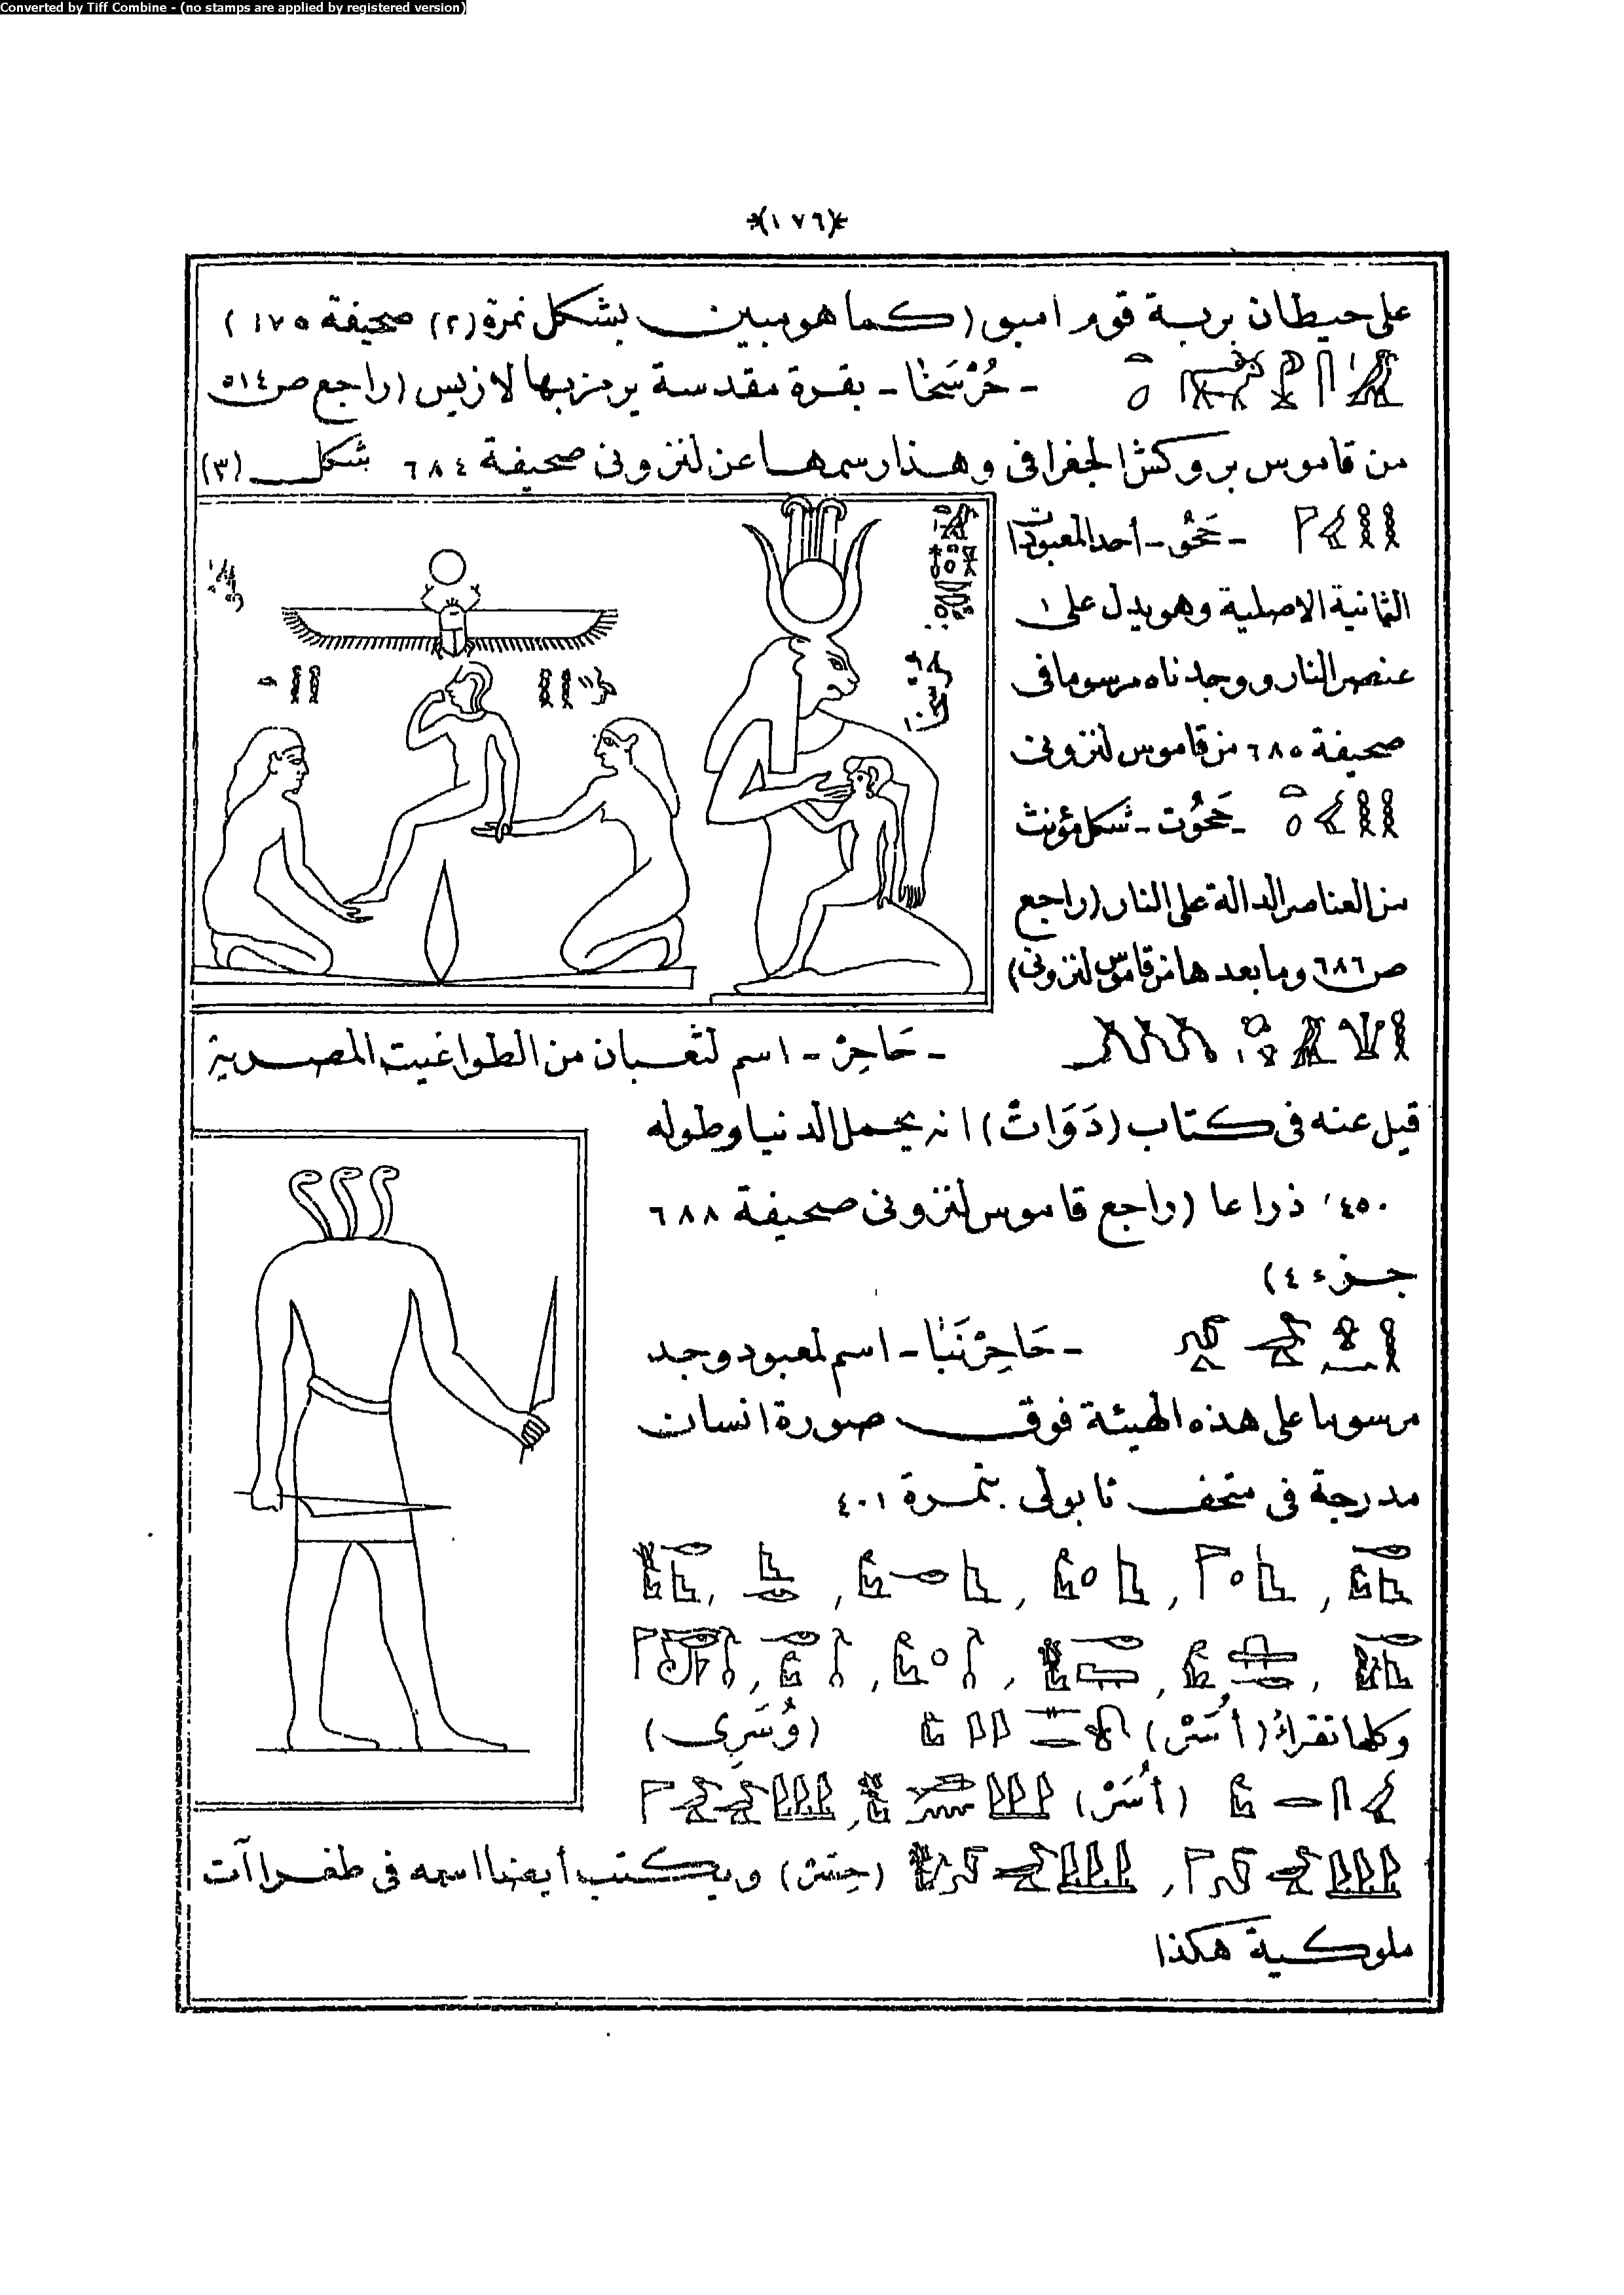 Converted by Tiff Combine - (no stamps are applied by registered version)
*(١٧٦)*
على حيطان بربة قوم امبو (كما هو مبين بشكل نمرة (٢) صحيفة ١٧٥)
- حُرْسَخَا - بقرة مقدسة يرمز بها لازيس (راجع ص ٥١٤
من قاموس بروكش الجغرافى وهذا رسمها عن لنزونى صحيفة ٦٨٤ شكل (٣)
- حَحُو - أحد المعبودات
الثمانية الاصلية وهو يدل على
عنصر النار ووجدناه مرسوما فى
صحيفة ٦٨٥ من قاموس لنزونى
- حَحُوت - شكل مؤنث
من العناصر الدالة على النار (راجع
ص ٦٨٦ وما بعدها من قاموس لنزونى)
- حَاحِرْ - اسم لثعبان من الطواغيت المصرية
قيل عنه فى كتاب (دَوَاتْ) انه يحمل الدنيا وطوله
٤٥٠ ذراعا (راجع قاموس لنزونى صحيفة ٦٨٨
جزء ٤)
- حَاحِرْنَبَا - اسم لمعبود وجد
مرسوما على هذه الهيئة فوق صورة انسان
مدرجة فى متحف نابولى بنمرة ٤٠١
وكلها تقرأ (أُسَرْ) (وُسَرِى)
(أُسَرْ)
ويكتب أيضا اسمه فى طغراآت
ملوكية هكذا